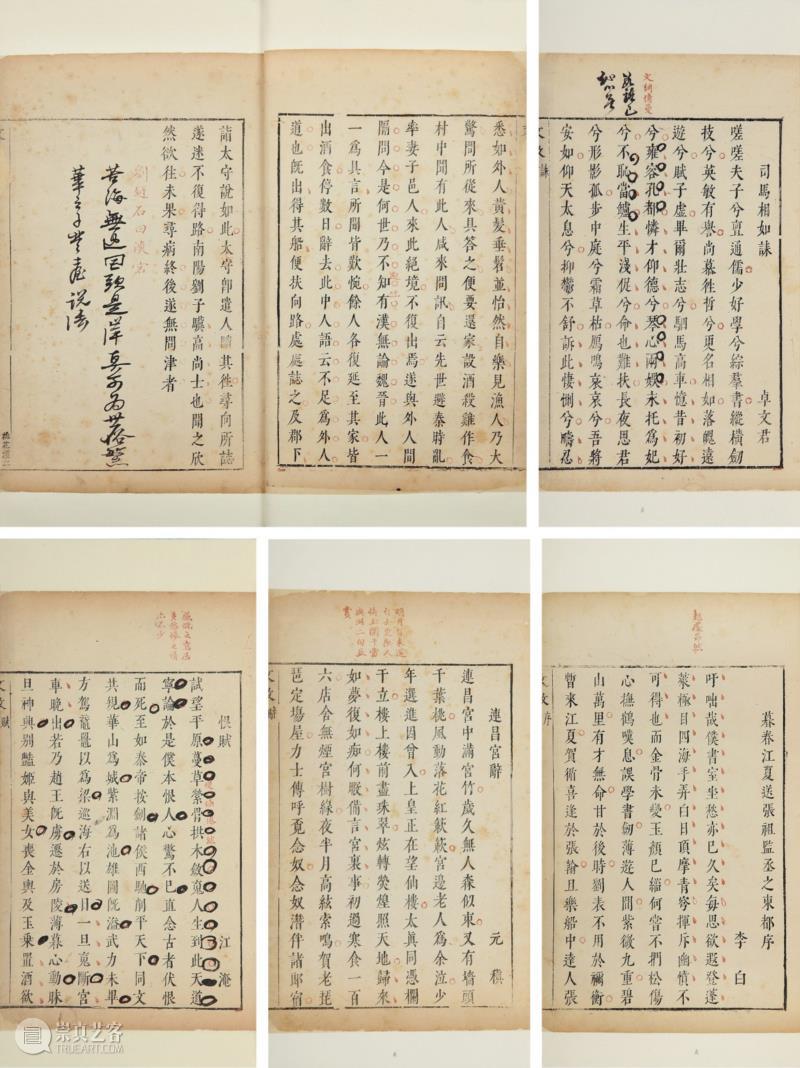 悉如外人黃髮垂髫並怡然自樂見漁人乃大
驚問所從來具答之便要還家設酒殺雞作食
村中聞有此人咸來問訊自云先世避秦時亂
率妻子邑人來此絕境不復出焉遂與外人間
隔問今是何世乃不知有漢無論魏晉此人一
一為具言所聞皆歎惋餘人各復延至其家皆
出酒食停數日辭去此中人語云不足為外人
道也旣出得其船便扶向路處處誌之及郡下
詣太守說如此太守卽遣人隨其徃尋向所誌
遂迷不復得路南陽劉子驥高尚士也聞之欣
然欲往未果尋病終後遂無問津者
苦海無邊回頭是岸
說法
司馬相如誄
卓文君
嗟嗟夫子兮亶通儒少好學兮綜羣書縱橫劒
技兮英敏有譽尚慕徃哲兮更名相如落魄遠
遊兮賦子虛畢爾壯志兮駟馬高車憶昔初好
兮雍容孔都憐才仰德兮琴心兩娛永托為妃
兮不恥當爐生平淺促兮命也難扶長夜思君
兮形影孤步中庭兮霜草枯鴈鳴哀哀兮吾將
安如仰天太息兮抑鬱不舒訴此悽惻兮疇忍
恨賦
江淹
試望平原蔓草縈骨拱木斂䰟人生到此天道
寧論於是僕本恨人心驚不已直念古者伏恨
而死至如秦帝按劍諸侯西馳削平天下同文
共規華山為城紫淵為池雄圖旣溢武力未畢
方駕黿鼉以為梁巡海右以送日一旦䰟斷宮
車晚出若乃趙王旣虜遷於房陵薄暮心動昧
旦神興別豔姬與美女喪金輿及玉乘置酒欲
連昌宮辭
元稹
連昌宮中滿宮竹歲久無人森似束又有墻頭
千葉桃風動落花紅蔌蔌宮邊老人為余泣少
年選進因曾入上皇正在望仙樓太真同憑欄
干立樓上樓前盡珠翠炫轉熒煌照天地歸來
如夢復如癡何暇備言宮裏事初過寒食一百
六店舍無煙宮樹綠夜半月高絃索鳴賀老琵
琶定塲屋力士傳呼覓念奴念奴潛伴諸郎宿
暮春江夏送張祖監丞之東都序
李白
吁咄哉僕書室坐愁亦已久矣每思欲遐登蓬
萊極目四海手弄白日頂摩青穹揮斥幽憤不
可得也而金骨未變玉顏已緇何嘗不捫松傷
心撫鶴嘆息誤學書劒薄遊人間紫微九重碧
山萬里有才無命甘於後時劉表不用於禰衡
暫來江夏賀循喜逢於張翰且樂船中達人張
崇真艺客
TRUEART.COM